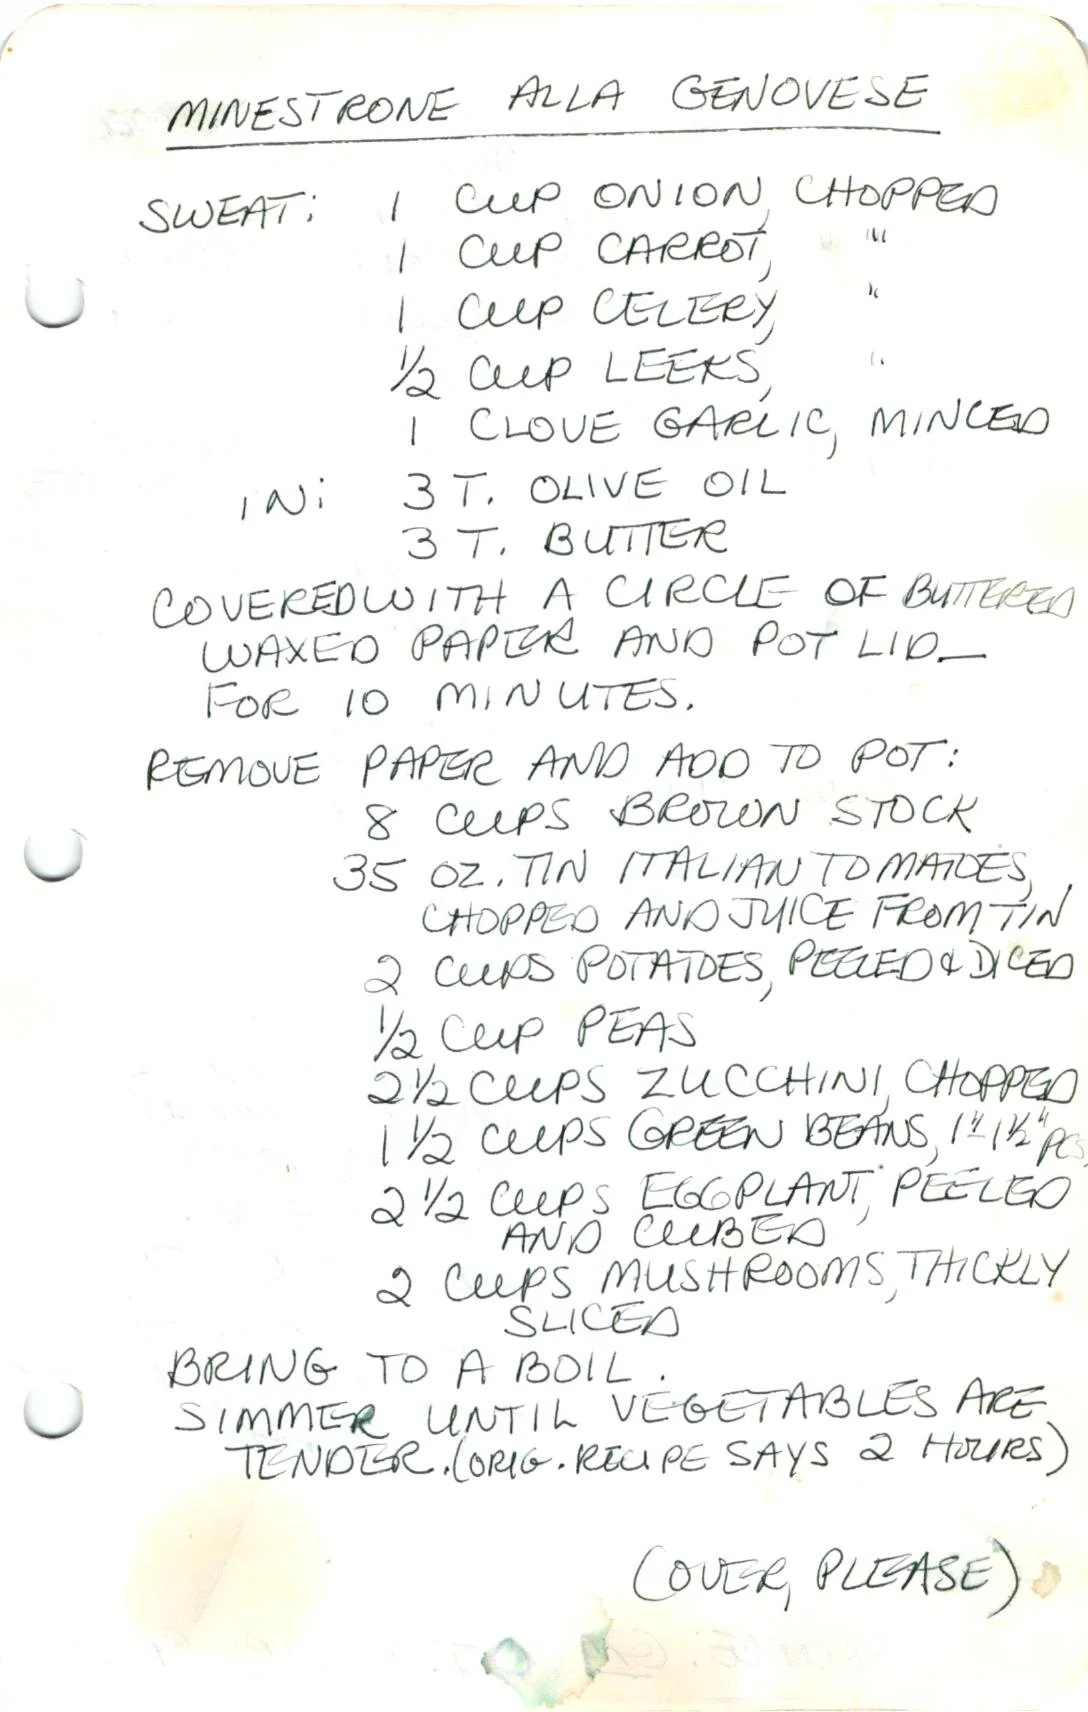 MINESTRONE ALLA GENOVESE
SWEAT: 1 CUP ONION, CHOPPED
1 CUP CARROT, "
1 CUP CELERY, "
1/2 CUP LEEKS, "
1 CLOVE GARLIC, MINCED
IN: 3 T. OLIVE OIL
3 T. BUTTER
COVERED WITH A CIRCLE OF BUTTERED
WAXED PAPER AND POT LID—
FOR 10 MINUTES.
REMOVE PAPER AND ADD TO POT:
8 CUPS BROWN STOCK
35 OZ. TIN ITALIAN TOMATOES,
CHOPPED AND JUICE FROM TIN
2 CUPS POTATOES, PEELED & DICED
1/2 CUP PEAS
2 1/2 CUPS ZUCCHINI, CHOPPED
1 1/2 CUPS GREEN BEANS, 1"-1 1/2" PCS.
2 1/2 CUPS EGGPLANT, PEELED
AND CUBED
2 CUPS MUSHROOMS, THICKLY
SLICED
BRING TO A BOIL.
SIMMER UNTIL VEGETABLES ARE
TENDER. (ORIG. RECIPE SAYS 2 HOURS)
(OVER, PLEASE)